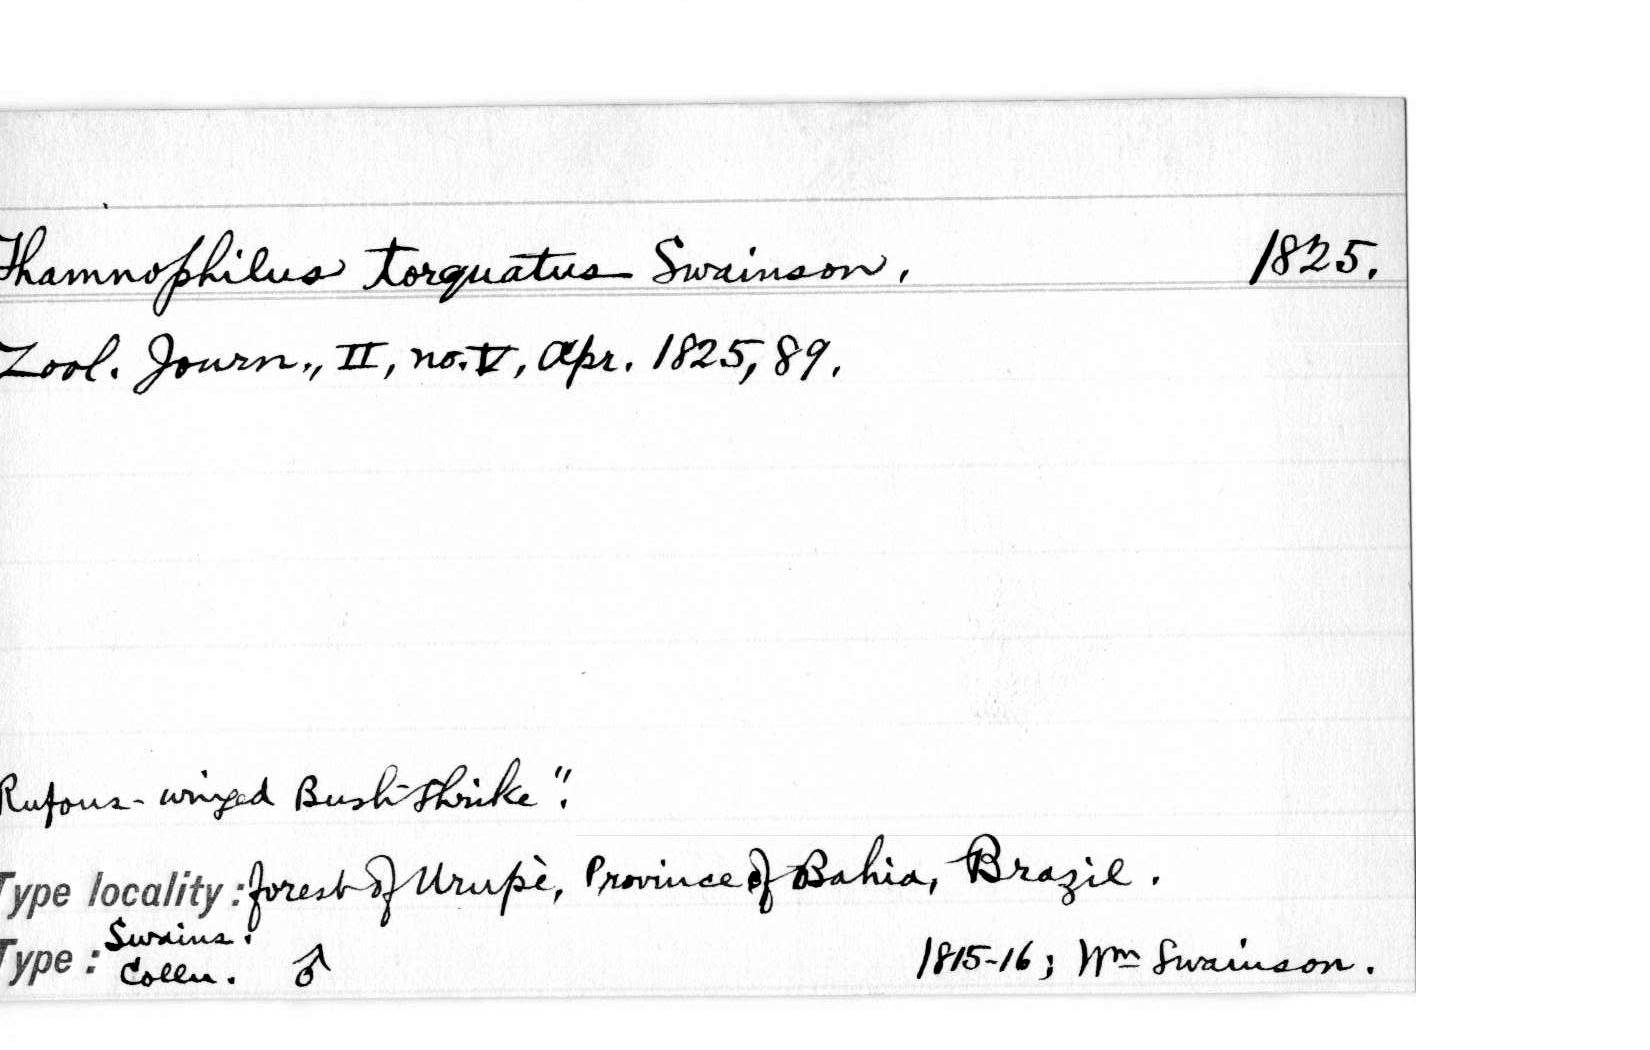 Thamnophilus torquatus Swainson, 1825.
Zool. Journ., II, no. V, Apr. 1825, 89.
Rufous-winged Bush-Shrike".
Type locality: forest of Urupè, Province of Bahia, Brazil.
Type: Swains. Colln. ♂ 1815-16; Wm Swainson.